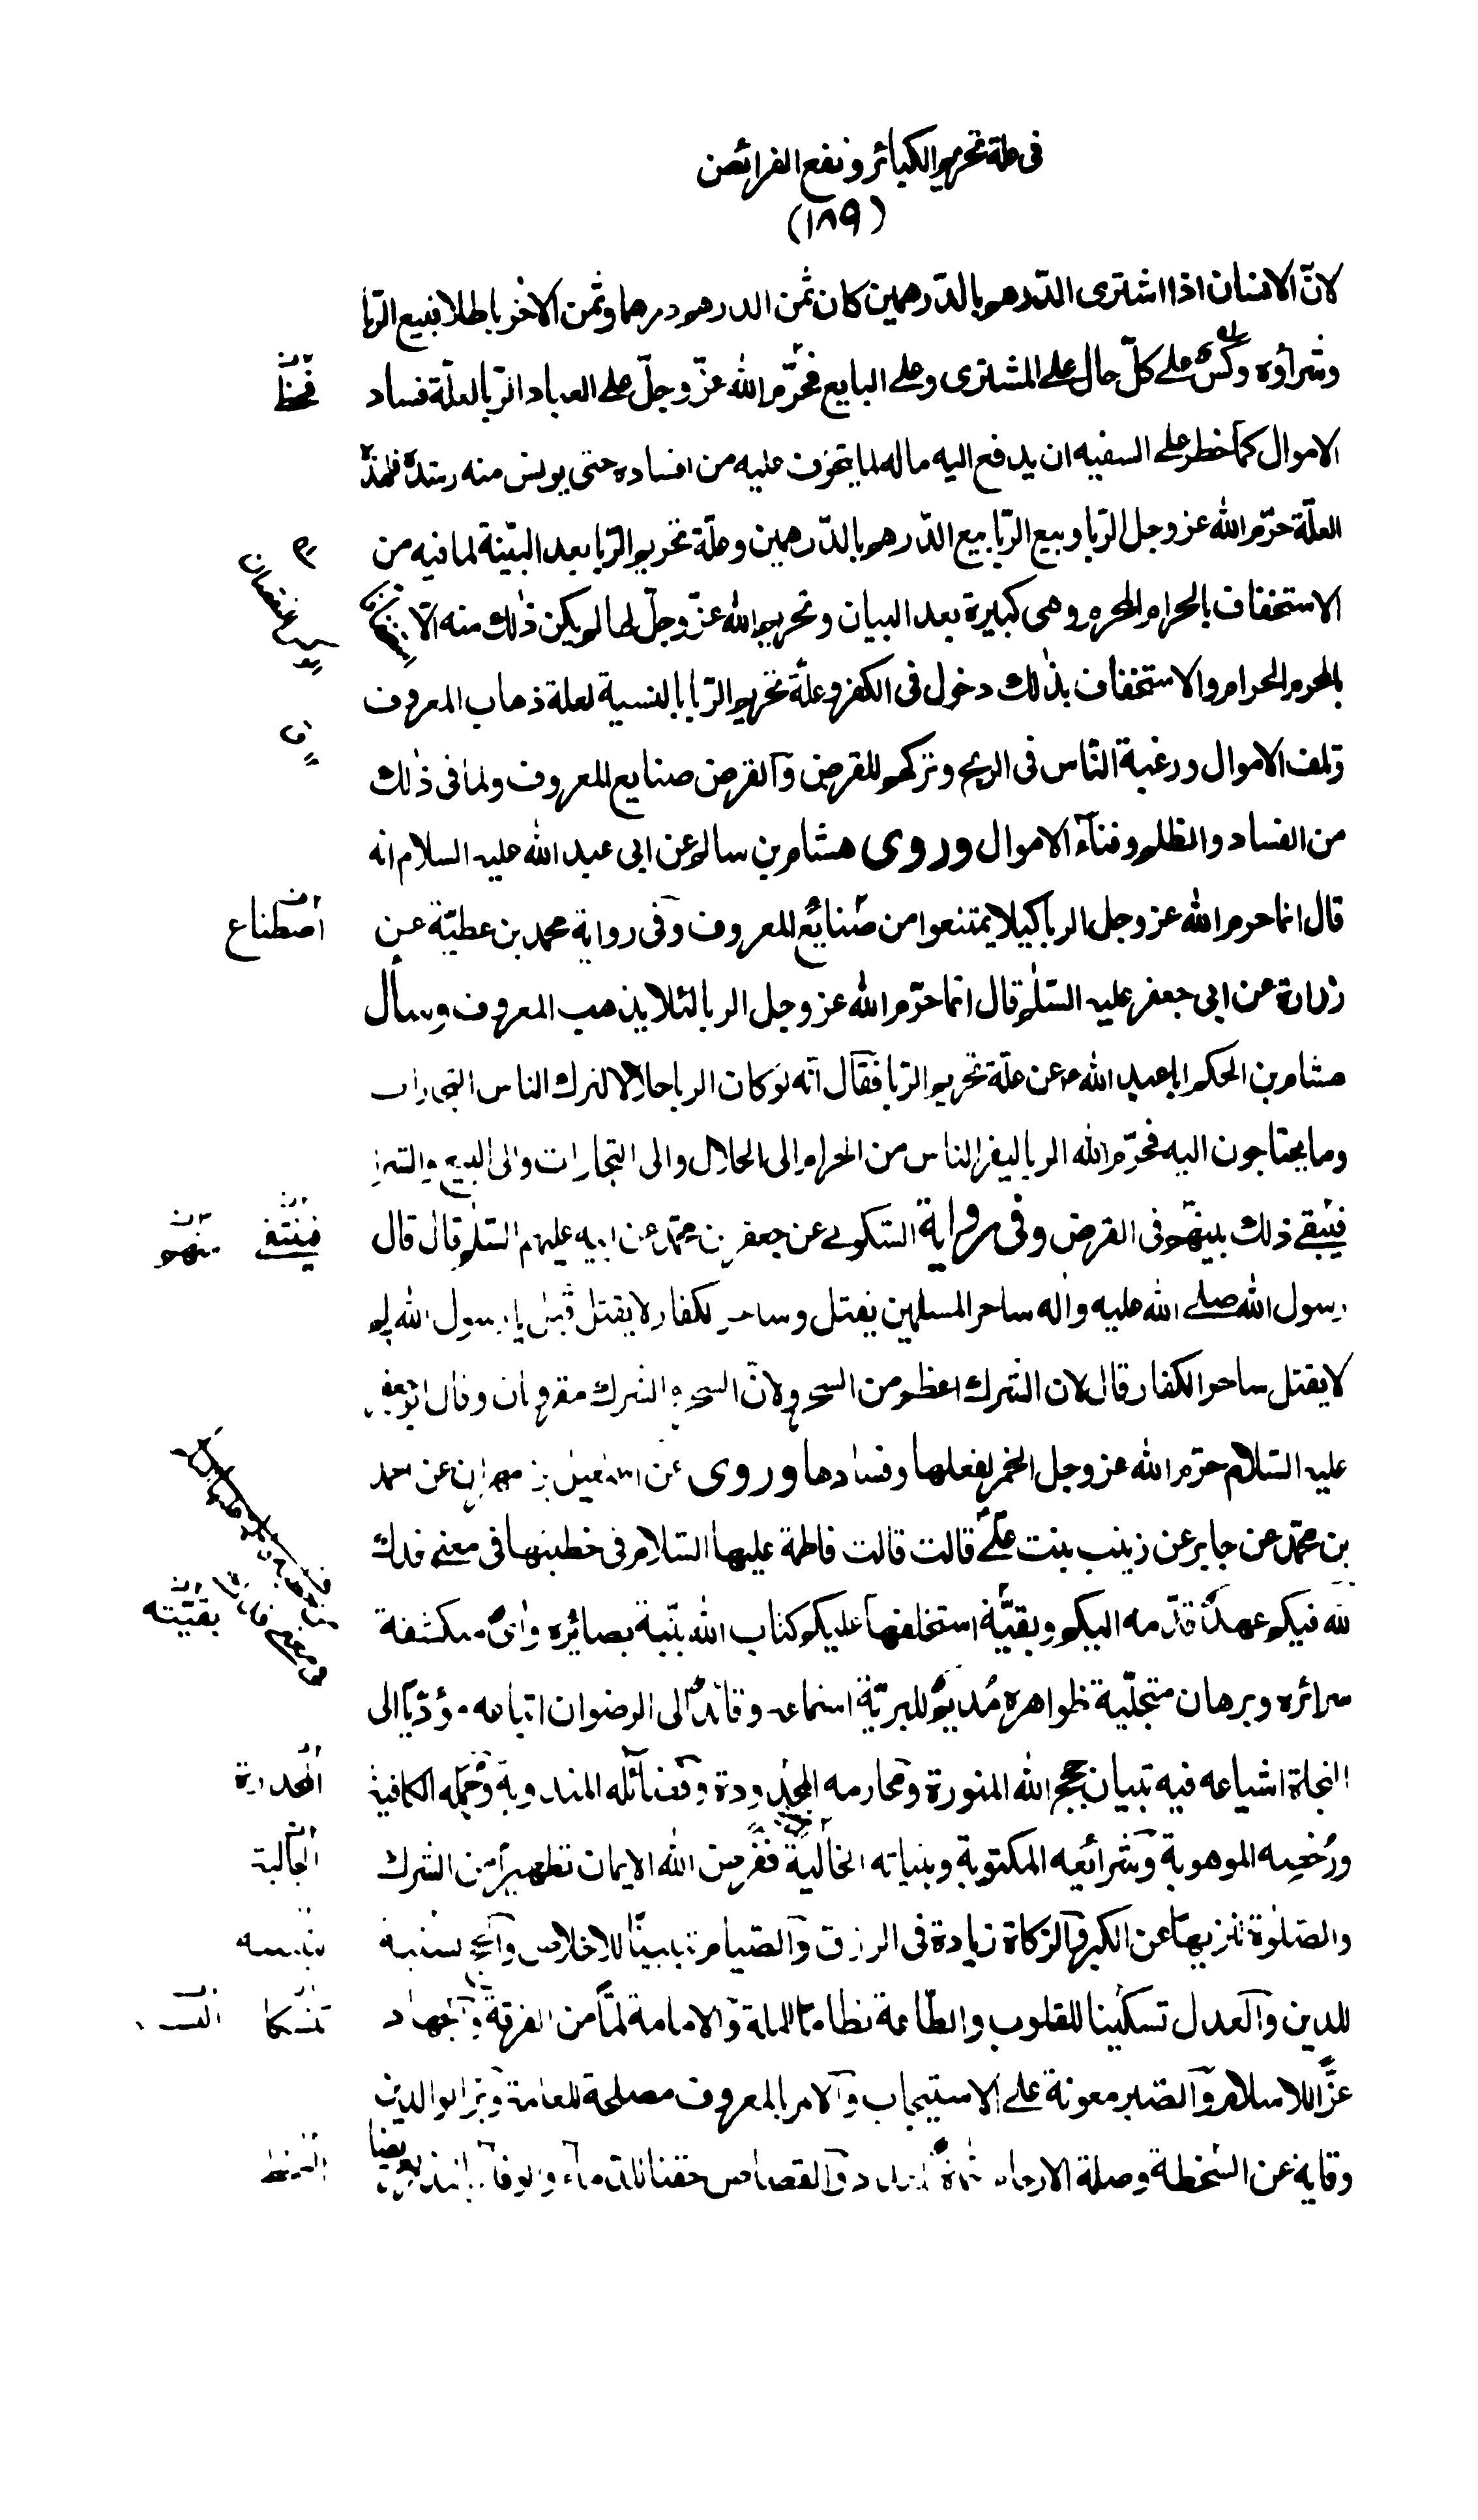 فى علة تحريم الكبائر و نفع الفرائض
(١٨٩)
لانّ الانسان اذا اشترى الدّرهم بالدّرهمين كان ثمن الدرهم درهما وثمن الاخر باطلا فبيع الرّبا
وشراؤه وكسٌ على كلّ حال على المشترى وعلى البايع فحرّم الله عزّ وجلّ على العباد الرّبا لعلّة فساد
الاموال كما حظر على السفيه ان يدفع اليه ماله لما يتخوّف عليه من افساده حتى يونس منه رشدٌ فلهذه
العلّة حرّم الله عز وجل الرّبا و بيع الرّبا بيع الدّرهم بالدّرهمين وعلّة تحريم الرّبا بعد البيّنة لما فيه من
الاستخفاف بالحرام المحرم وهى كبيرة بعد البيان و تحريم الله عزّ وجلّ لها لم يكن ذلك منه الّا
بالمحرم الحرام والاستخفاف بذلك دخول فى الكفر وعلّة تحريم الرّبا بالنسية لعلة ذهاب المعروف
وتلف الاموال ورغبة النّاس فى الربح وتركهم للقرض والقرض صنايع المعروف ولما فى ذلك
من الفساد والظلم وفناء الاموال وروى هشام بن سالم عن ابى عبد الله عليه السلام انه
قال انما حرم الله عز وجل الربا كيلا يمتنعوا من صنايع المعروف وفى رواية محمد بن عطيّة عن
زرارة عن ابى جعفر عليه السّلم قال انما حرّم الله عز وجل الربا لئلا يذهب المعروف وسأل
هشام بن الحكم ابا عبد الله ع عن علّة تحريم الرّبا فقال انّه لو كان الربا حلالا لترك الناس التجارات
وما يحتاجون اليه فحرّم الله الربا ليفر الناس من الحرام الى الحلال والى التجارات والى البيع والشراء
فيبقى ذلك بينهم فى القرض وفى رواية السّكونى عن جعفر بن محمّد عن ابيه عليهم السّلم قال قال
رسول الله صلى الله عليه واله ساحر المسلمين يقتل وساحر الكفار لا يقتل قيل يا رسول الله لم
لا يقتل ساحر الكفار قال لان الشرك اعظم من السحر ولانّ السحر والشرك مقرونان وقال ابو جعفر
عليه السّلام حرّم الله عز وجل الخمر لفعلها وفسادها وروى عن اسمعيل بن مهران عن احمد
بن محمّد عن جابر عن زينب بنت علىّ قالت قالت فاطمة عليها السّلام فى خطبتها فى معنى فدك
لله فيكم عهدٌ قدّمه اليكم وبقيّة استخلفها عليكم كتاب الله بيّنة بصائره وآىٌ منكشفة
سرائره وبرهان متجلّية ظواهره مُديمٌ للبريّة استماعه وقائدٌ الى الرضوان اتباعه مؤدّيًا الى
النجاة اشياعه فيه تبيان حجج الله المنورة ومحارمه المحدودة وفضائله المندوبة وجمله الكافية
ورُخصه الموهوبة وشرائعه المكتوبة وبيناته الخالية ففرض الله الايمان تطهيرًا من الشرك
والصّلوة تنزيهًا عن الكبر والزكاة زيادة فى الرزق والصّيام تبيينًا للاخلاص والحج تسنية
للدين والعدل تسكينا للقلوب والطّاعة نظاما للملة والامامة لمًّا من الفرقة والجهاد
عزًّا للاسلام والصّبر معونة على الاستيجاب والامر بالمعروف مصلحة للعامة وبرّ الوالدين
وقاية عن السّخطة وصلة الارحام منماة للعدد والقصاص حقنا للدماء والوفاء بالنذر
اصطناع
بقيّته